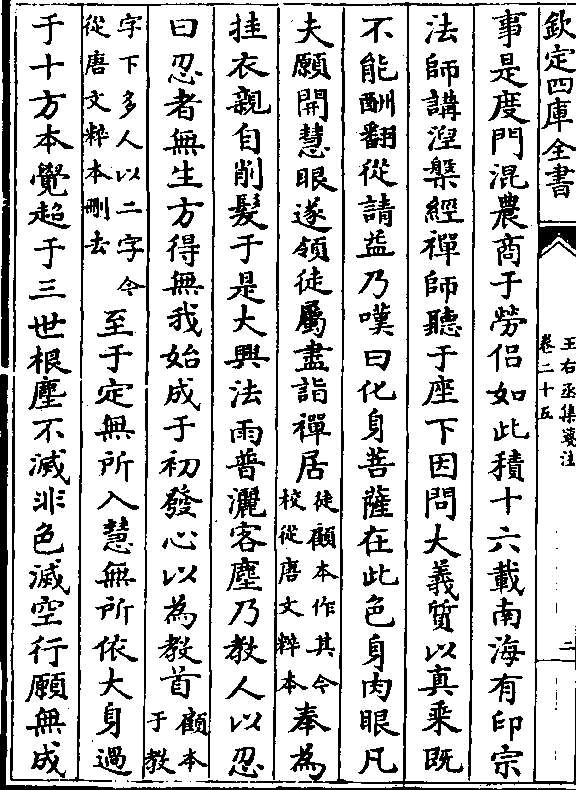 欽定四庫全書
王右丞集箋注
卷二十五
二
事是度門混農商于勞侣如此積十六載南海有印宗
法師講湼槃經禪師聽于座下因問大義質以真乘既
不能酬翻從請益乃嘆曰化身菩薩在此色身肉眼凡
夫願開慧眼遂領徒屬盡詣禪居徒顧本作其今校從唐文粹本奉為
挂衣親自削髮于是大興法雨普灑客塵乃教人以忍
曰忍者無生方得無我始成于初發心以為教首顧本于教
字下多人以二字今從唐文粹本刪去至于定無所入慧無所依大身過
于十方本覺超于三世根塵不滅非色滅空行願無成